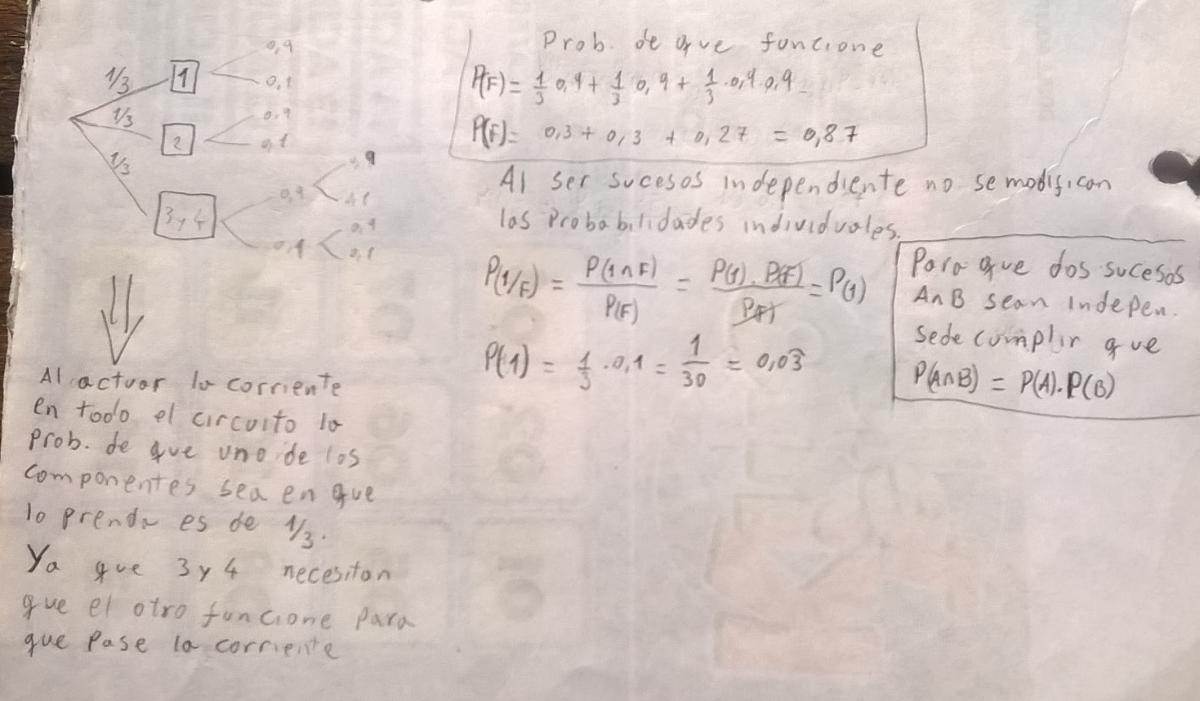 1/3
1
0,9
0,1
1/3
2
0,9
0,1
1/3
3 y 4
0,9
0,9
0,1
0,1
0,9
0,1
Al actuar la corriente
en todo el circuito la
prob. de que uno de los
componentes sea en que
lo prenda es de 1/3.
Ya que 3 y 4 necesitan
que el otro funcione para
que pase la corriente
Prob. de que funcione
P(F) = 1/3 0,9 + 1/3 0,9 + 1/3 · 0,9 0,9
P(F) = 0,3 + 0,3 + 0,27 = 0,87
Al ser sucesos independiente no se modifican
las probabilidades individuales.
P(1/F) = P(1∩F)/P(F) = P(1) . P(F)/P(F) = P(1)
P(1) = 1/3 · 0,1 = 1/30 = 0,03
Para que dos sucesos
A∩B sean indepen.
sede cumplir que
P(A∩B) = P(A).P(B)